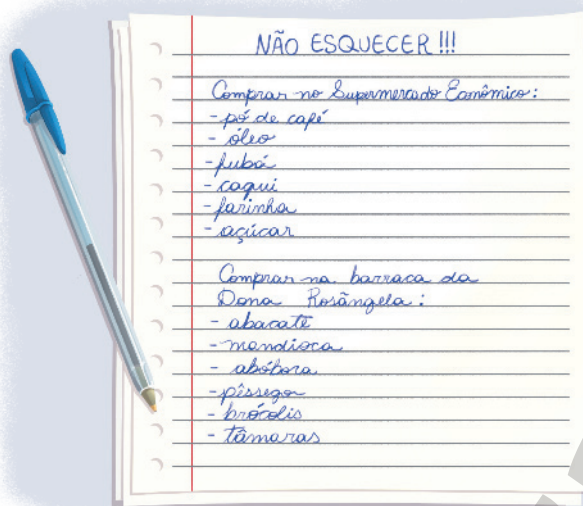 NÃO ESQUECER!!!
Comprar no Supermercado Econômico:
- pó de café
- óleo
- fubá
- caqui
- farinha
- açúcar
Comprar na barraca da
Dona Rosângela:
- abacate
- mandioca
- abóbora
- pêssego
- brócolis
- tâmaras